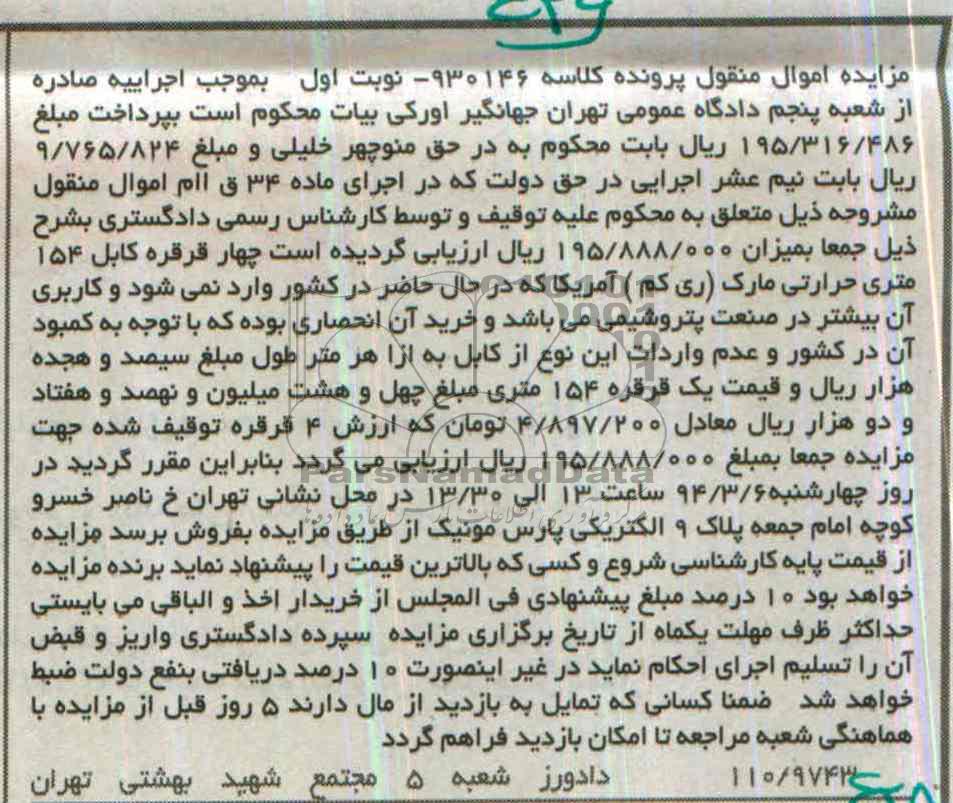 مزایده اموال منقول پرونده کلاسه ۹۳۰۱۴۶- نوبت اول بموجب اجراییه صادره
از شعبه پنجم دادگاه عمومی تهران جهانگیر اورکی بیات محکوم است بپرداخت مبلغ
۱۹۵/۳۱۶/۴۸۶ ریال بابت محکوم به در حق منوچهر خلیلی و مبلغ ۹/۷۶۵/۸۲۴
ریال بابت نیم عشر اجرایی در حق دولت که در اجرای ماده ۳۴ ق اام اموال منقول
مشروحه ذیل متعلق به محکوم علیه توقیف و توسط کارشناس رسمی دادگستری بشرح
ذیل جمعا بمیزان ۱۹۵/۸۸۸/۰۰۰ ریال ارزیابی گردیده است چهار قرقره کابل ۱۵۴
متری حرارتی مارک (ری کم) آمریکا که در حال حاضر در کشور وارد نمی شود و کاربری
آن بیشتر در صنعت پتروشیمی می باشد و خرید آن انحصاری بوده که با توجه به کمبود
آن در کشور و عدم واردات این نوع از کابل به ازا هر متر طول مبلغ سیصد و هجده
هزار ریال و قیمت یک قرقره ۱۵۴ متری مبلغ چهل و هشت میلیون و نهصد و هفتاد
و دو هزار ریال معادل ۴/۸۹۷/۲۰۰ تومان که ارزش ۴ قرقره توقیف شده جهت
مزایده جمعا بمبلغ ۱۹۵/۸۸۸/۰۰۰ ریال ارزیابی می گردد بنابراین مقرر گردید در
ParsNamadData
روز چهارشنبه۹۴/۳/۶ ساعت ۱۳ الی ۱۳/۳۰ در محل نشانی تهران خ ناصر خسرو
کوچه امام جمعه پلاک ۹ الکتریکی پارس مونیک از طریق مزایده بفروش برسد مزایده
از قیمت پایه کارشناسی شروع و کسی که بالاترین قیمت را پیشنهاد نماید برنده مزایده
خواهد بود ۱۰ درصد مبلغ پیشنهادی فی المجلس از خریدار اخذ و الباقی می بایستی
حداکثر ظرف مهلت یکماه از تاریخ برگزاری مزایده سپرده دادگستری واریز و قبض
آن را تسلیم اجرای احکام نماید در غیر اینصورت ۱۰ درصد دریافتی بنفع دولت ضبط
خواهد شد ضمنا کسانی که تمایل به بازدید از مال دارند ۵ روز قبل از مزایده با
هماهنگی شعبه مراجعه تا امکان بازدید فراهم گردد
۱۱۰/۹۷۴۳ دادورز شعبه ۵ مجتمع شهید بهشتی تهران